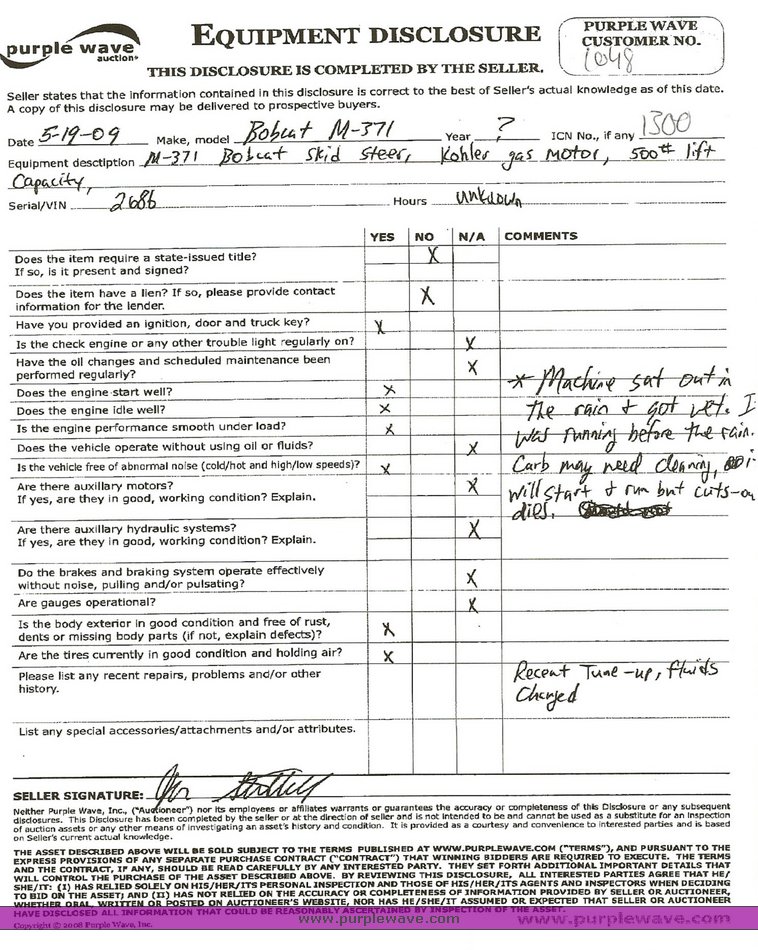 purple wave
auction®
EQUIPMENT DISCLOSURE
PURPLE WAVE
CUSTOMER NO.
1048
THIS DISCLOSURE IS COMPLETED BY THE SELLER.
Seller states that the information contained in this disclosure is correct to the best of Seller's actual knowledge as of this date.
A copy of this disclosure may be delivered to prospective buyers.
Date 5-19-09 Make, model Bobcat M-371 Year ? ICN No., if any 1300
Equipment desctiption M-371 Bobcat Skid Steer, Kohler gas Motor, 500# lift
Capacity,
Serial/VIN 2686 Hours Unkdown
YES NO N/A COMMENTS
Does the item require a state-issued title? X
If so, is it present and signed?
Does the item have a lien? If so, please provide contact
information for the lender. X
Have you provided an ignition, door and truck key? X
Is the check engine or any other trouble light regularly on? X
Have the oil changes and scheduled maintenance been
performed regularly? X
Does the engine start well? X
Does the engine idle well? X
Is the engine performance smooth under load? X
Does the vehicle operate without using oil or fluids? X
Is the vehicle free of abnormal noise (cold/hot and high/low speeds)? X
Are there auxillary motors? X
If yes, are they in good, working condition? Explain.
Are there auxillary hydraulic systems? X
If yes, are they in good, working condition? Explain.
* Machine sat out in
the rain & got wet. I
was running before the rain.
Carb may need cleaning, i
will start & run but cuts-ou
dies.
Do the brakes and braking system operate effectively
without noise, pulling and/or pulsating? X
Are gauges operational? X
Is the body exterior in good condition and free of rust,
dents or missing body parts (if not, explain defects)? X
Are the tires currently in good condition and holding air? X
Please list any recent repairs, problems and/or other
history.
Recent Tune-up, fluids
Changed
List any special accessories/attachments and/or attributes.
SELLER SIGNATURE:
Neither Purple Wave, Inc., ("Auctioneer") nor its employees or affiliates warrants or guarantees the accuracy or completeness of this Disclosure or any subsequent
disclosures. This Disclosure has been completed by the seller or at the direction of seller and is not intended to and cannot be used as a substitute for an inspection
of auction assets or any other means of investigating an asset's history and condition. It is provided as a courtesy and convenience to interested parties and is based
on Seller's current actual knowledge.
THE ASSET DESCRIBED ABOVE WILL BE SOLD SUBJECT TO THE TERMS PUBLISHED AT WWW.PURPLEWAVE.COM ("TERMS"), AND PURSUANT TO THE
EXPRESS PROVISIONS OF ANY SEPARATE PURCHASE CONTRACT ("CONTRACT") THAT WINNING BIDDERS ARE REQUIRED TO EXECUTE. THE TERMS
AND THE CONTRACT, IF ANY, SHOULD BE READ CAREFULLY BY ANY INTERESTED PARTY. THEY SET FORTH ADDITIONAL IMPORTANT DETAILS THAT
WILL CONTROL THE PURCHASE OF THE ASSET DESCRIBED ABOVE. BY REVIEWING THIS DISCLOSURE, ALL INTERESTED PARTIES AGREE THAT HE/
SHE/IT: (I) HAS RELIED SOLELY ON HIS/HER/ITS PERSONAL INSPECTION AND THOSE OF HIS/HER/ITS AGENTS AND INSPECTORS WHEN DECIDING
TO BID ON THE ASSET; AND (II) HAS NOT RELIED ON THE ACCURACY OR COMPLETENESS OF INFORMATION PROVIDED BY SELLER OR AUCTIONEER,
WHETHER ORAL, WRITTEN OR POSTED ON AUCTIONEER'S WEBSITE, NOR HAS HE/SHE/IT ASSUMED OR EXPECTED THAT SELLER OR AUCTIONEER
HAVE DISCLOSED ALL INFORMATION THAT COULD BE REASONABLY ASCERTAINED BY INSPECTION OF THE ASSET.
Copyright © 2008 Purple Wave, Inc.
www.purplewave.com
www.purplewave.com